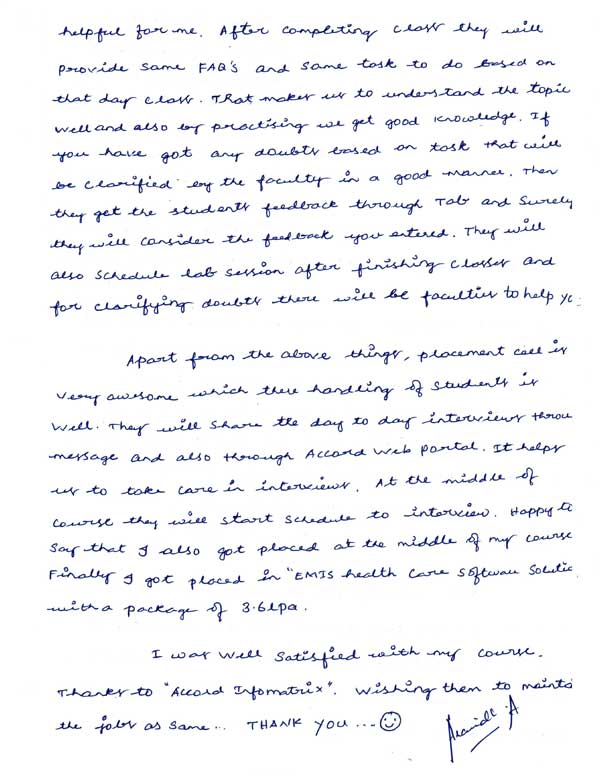 helpful for me. After completing class they will
provide some FAQ's and some task to do based on
that day class. That makes us to understand the topic
well and also by practising we get good knowledge. If
you have got any doubts based on task that will
be clarified by the faculty in a good manner. Then
they get the students feedback through Tab and Surely
they will consider the feedback you entered. They will
also schedule lab session after finishing classes and
for clarifying doubts there will be faculties to help yo
Apart from the above things, placement cell is
very awesome which there handling of students is
well. They will share the day to day interviews throu
message and also through Accord Web portal. It helps
us to take care in interviews. At the middle of
course they will start schedule to interview. Happy to
Say that I also got placed at the middle of my course
Finally I got placed in "EMIS health Care Software Solutio
with a package of 3.6lpa.
I was well satisfied with my course.
Thanks to "Accord Infomatrix". Wishing them to mainta
the jobs as same... THANK YOU ...